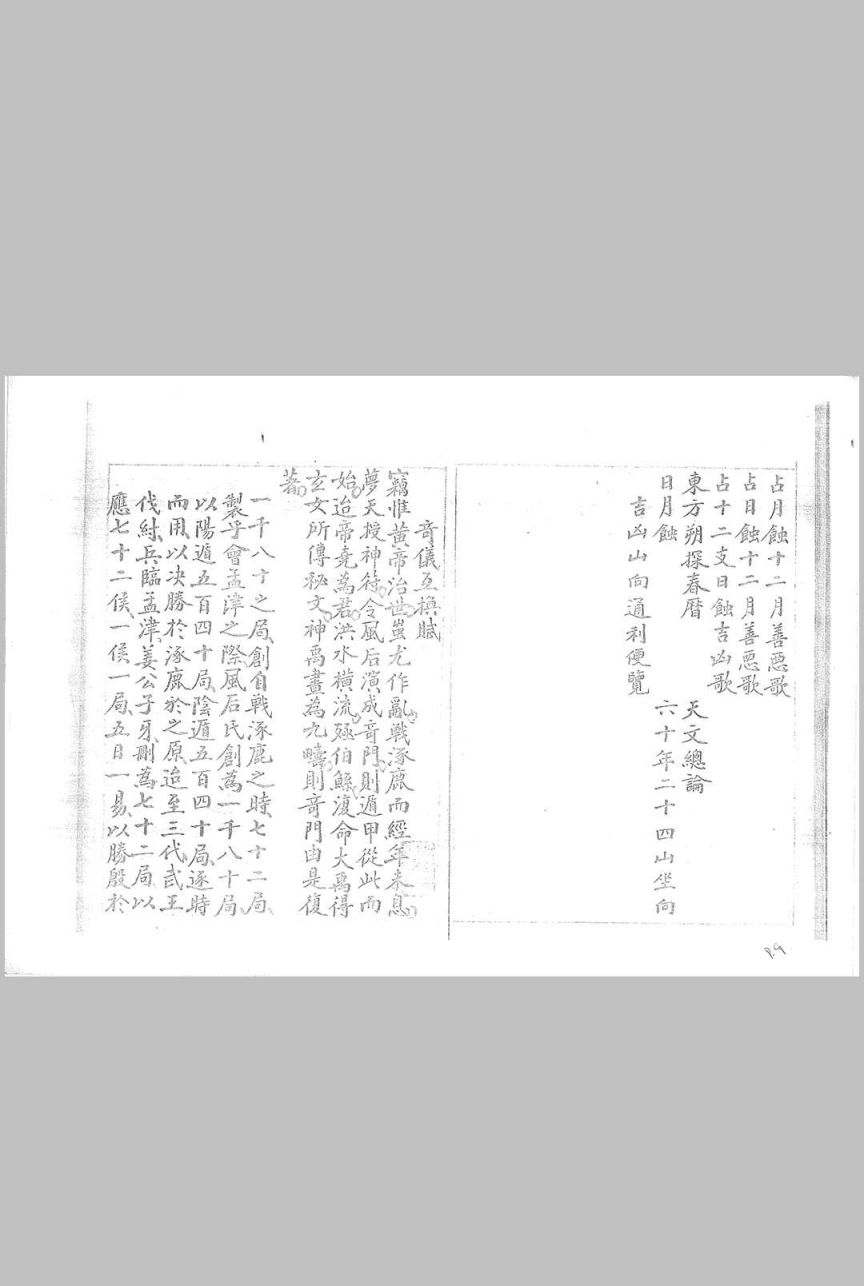 占月蝕十二月善惡歌
占日蝕十二月善惡歌
占十二支日蝕吉凶歌
東方朔探春曆 天文總論
日月蝕 六十年二十四山坐向
吉凶山向通利便覽
奇儀互換賦
竊惟黃帝治世蚩尤作亂戰涿鹿而經年未息
夢天授神符令風后演成奇門則遁甲從此而
始迨帝堯為君洪水橫流殛伯鯀復命大禹得
玄女所傳秘文神禹畫為九疇則奇門由是復
著
一千八十之局創自戰涿鹿之時七十二局
製乎會孟津之際風后氏創為一千八十局
以陽遁五百四十局陰遁五百四十局逐時
而用以决勝於涿鹿於之原迨至三代武王
伐紂兵臨孟津姜公子牙刪為七十二局以
應七十二候一候一局五日一易以勝殷於
P.9